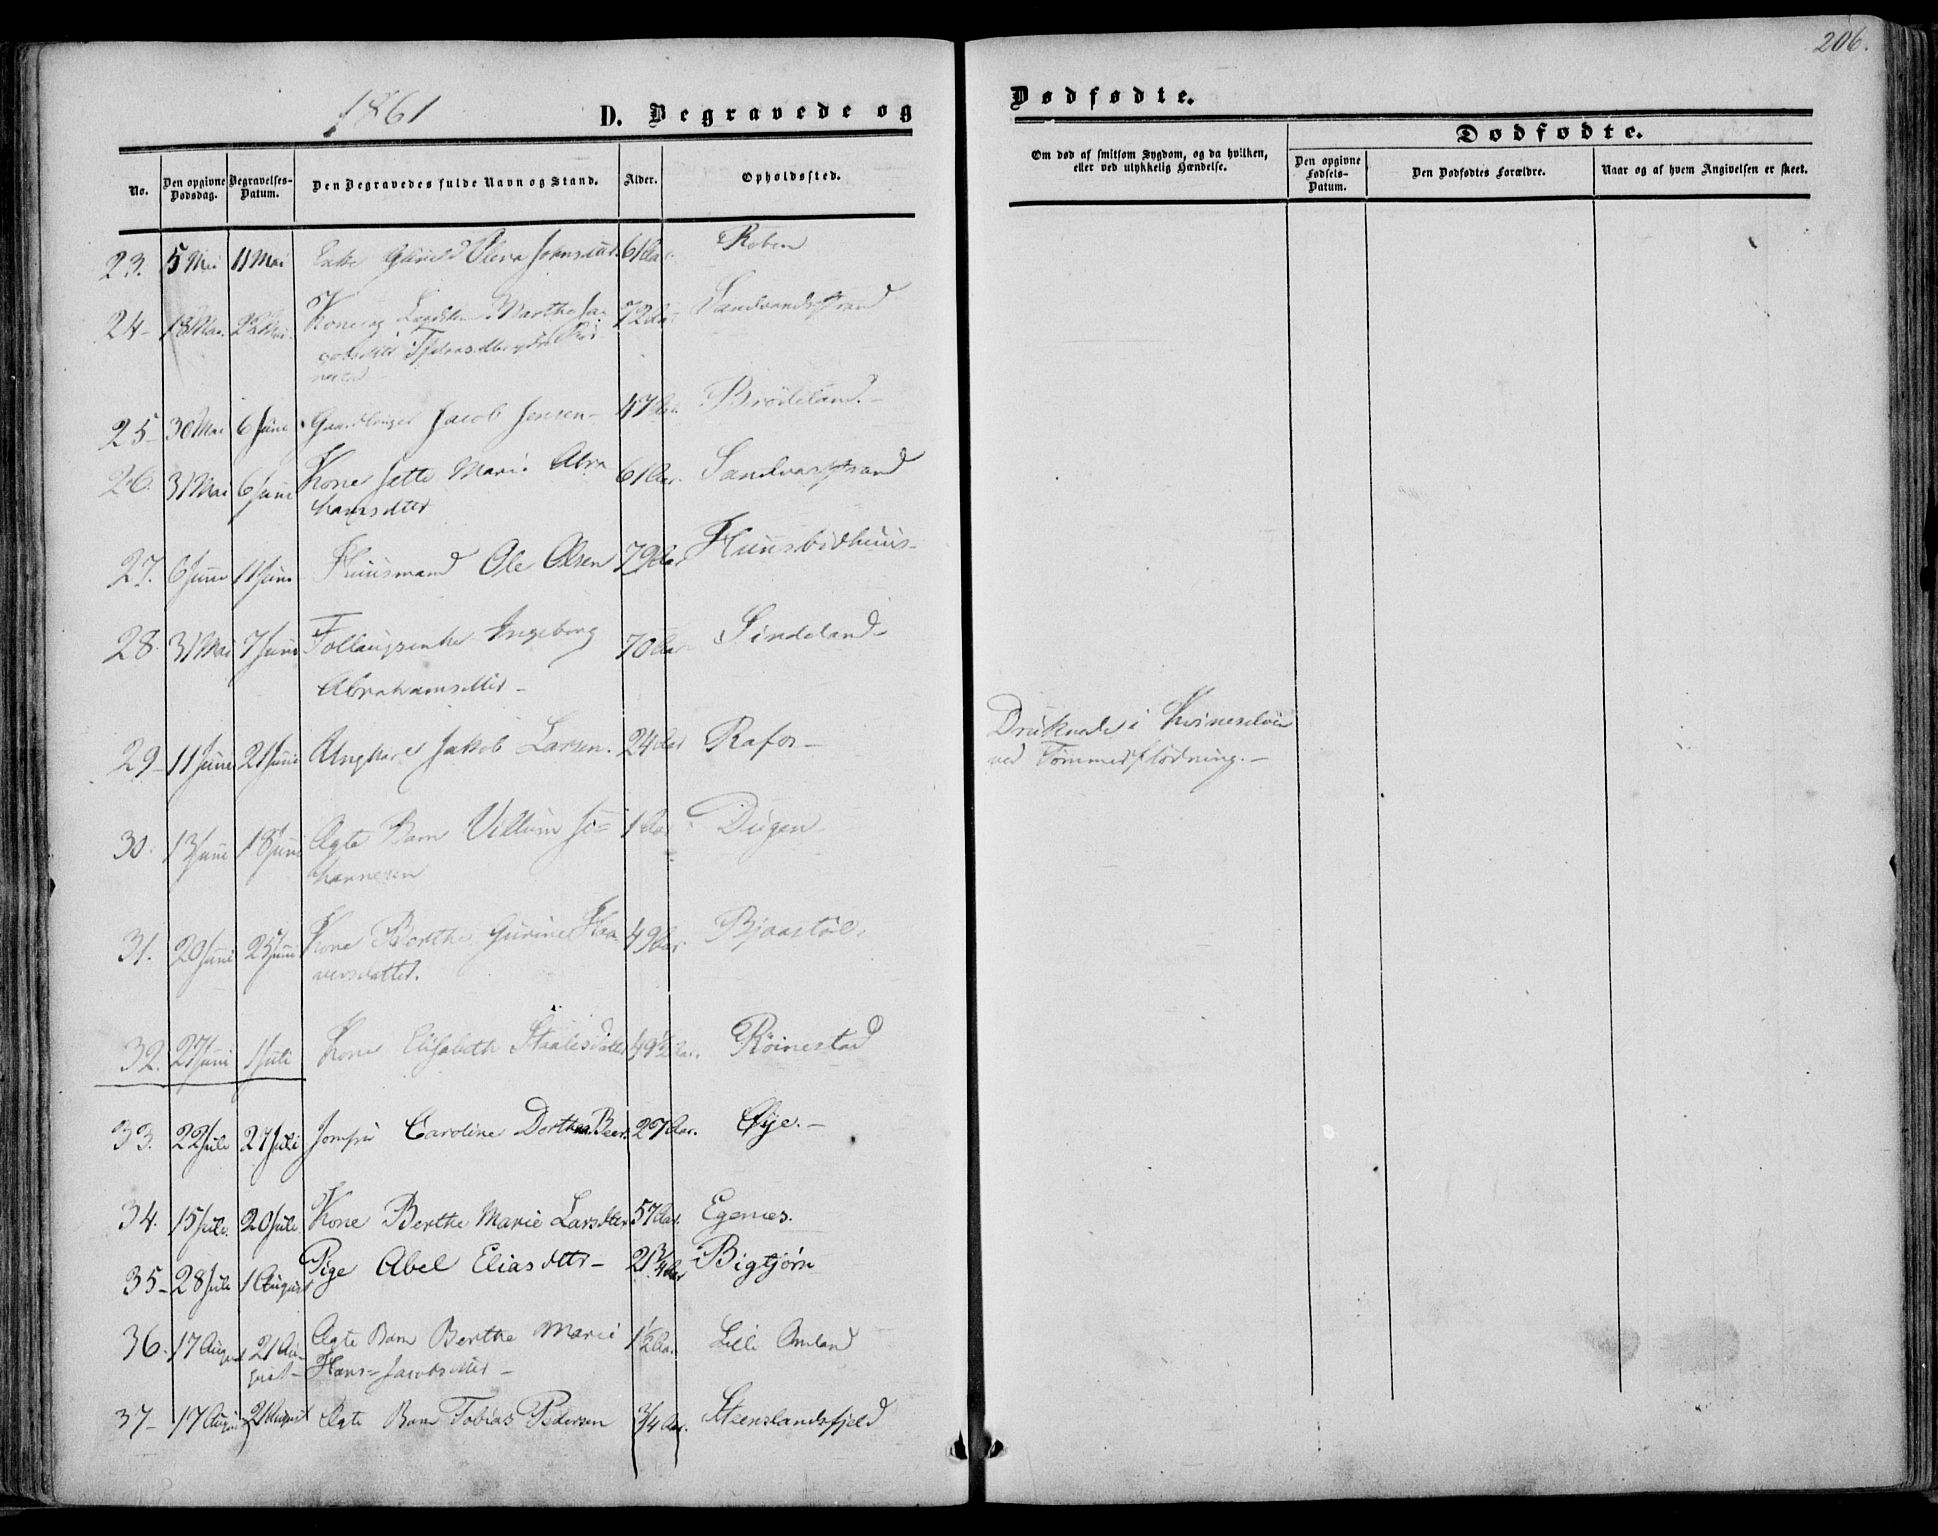 206.
1861
D. Begravede og
Dødfødte.
No.
Den opgivne Dødsdag.
Begravelses-Datum.
Den Begravedes fulde Navn og Stand.
Alder.
Opholdssted.
Om død af smitsom Sygdom, og da hvilken, eller ved ulykkelig Hændelse.
Dødfødte.
Den opgivne Fødsels-Datum.
Den Dødfødtes Forældre.
Naar og af hvem Angivelsen er skeet.
23. 5 Mai 11 Mai Enke Gunild Olena Johnsdatr. 61 Aar. Roben
24- 18 Mai. 23 Mai. Kone og Marthe Ja- 72 Aar Sandvandstrand
cobsdtter
25- 30 Mai 6 Juni Gaardbruger Jacob Jensen- 47 Aar. Brødeland.-
26. 31 Mai 6 Juni Kone Jette Marie Abra 61 Aar. Sandvanstrand
hamsdtter
27. 6 Juni 11 Juni Huusmand Ole Olsen 79 Aar Huusbödhuus-
28. 31 Mai 7 Juni Follaugsenke Ingeborg 70 Aar Sindeland-
Abrahamsdtter-
29- 11 Juni 21 Juni Ungkarl Jakob Larsen. 24 Aar Rafos- Druknede i Kvineselven
ved Tømmerflödning.-
30. 13 Juni 18 Juni Ægte Barn Villum Jo= 1 Aar Dugan
hannesen
31. 20 Juni 25 Juni Kone Berthe Gurine Haa 49 Aar. Bjaastöl.
versdatter.
32. 27 Juni 1 Juli Kone Elisabeth Staalesdatter 49½ Aar. Röinestad
33. 22 Juli 27 Juli Jomfru Caroline Dorthea Beer. 27 Aar. Øye.-
34. 15 Juli. 20 Juli Kone Berthe Marie Larsdtter 57 Aar. Egenes.
35- 28 Juli 1 August Pige Abel Eliasdttr- 21¾ Aar Bigtjörn
36. 17 August 21 Au- Ægte Barn Berthe Marie 1½ Aar. Lille Omland
gust- Hans=Jacobsdtter-
37- 17 August 21 August Ægte Barn Tobias Pedersen ¾ Aar. Steenslandsfjeld